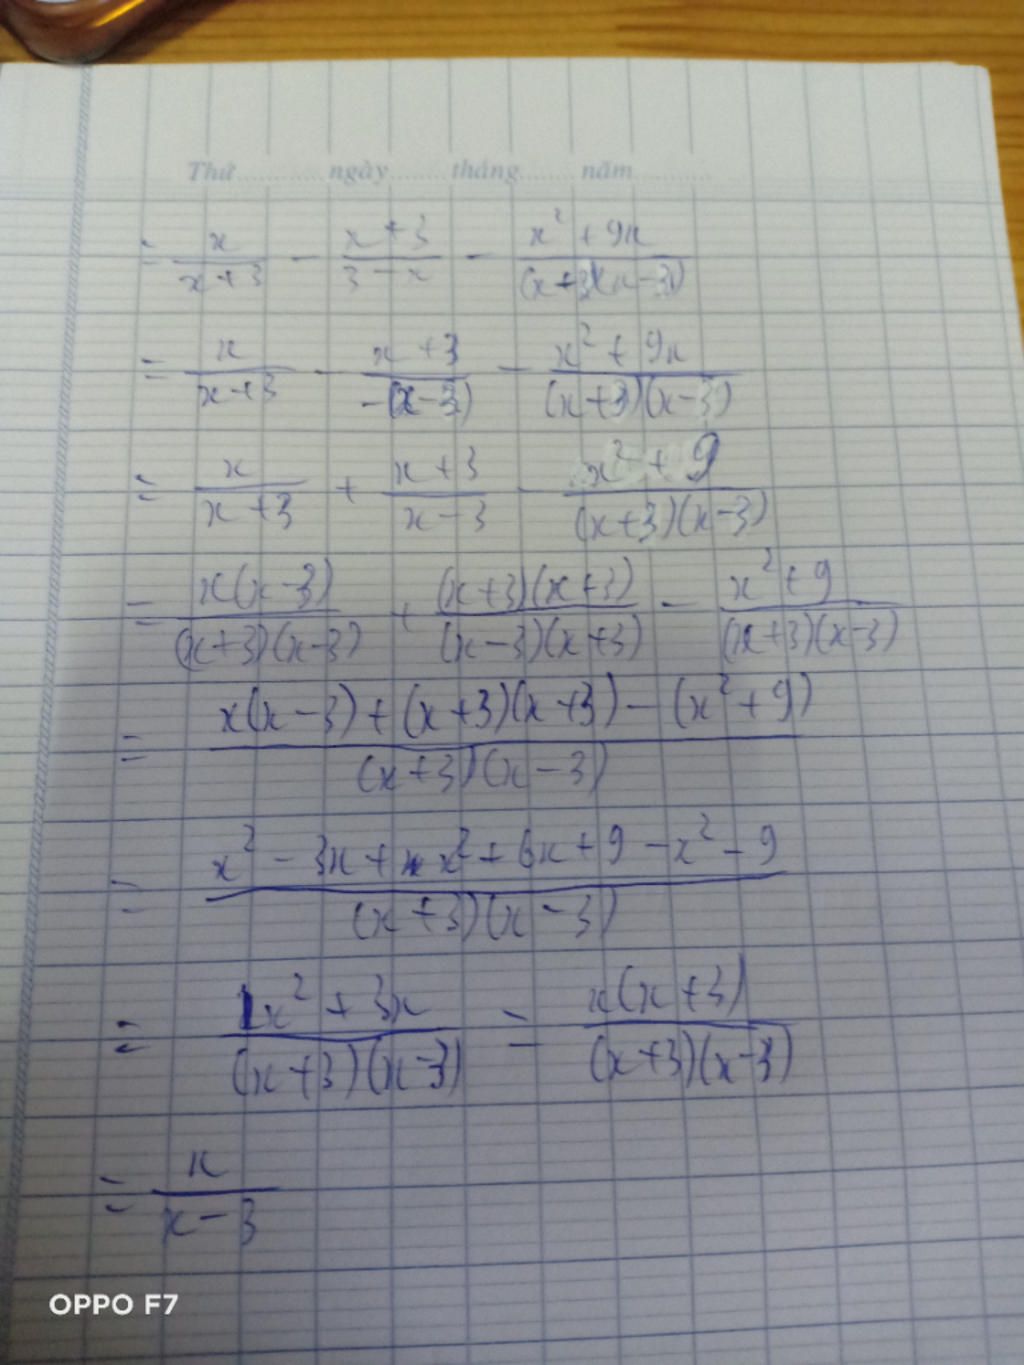 Thứ............ngày........tháng........năm............
= x/(x+3) - (x+3)/(3-x) - (x²+9x)/((x+3)(x-3))
= x/(x+3) - (x+3)/(-(x-3)) - (x²+9x)/((x+3)(x-3))
= x/(x+3) + (x+3)/(x-3) - (x²+9)/((x+3)(x-3))
= x(x-3)/((x+3)(x-3)) + (x+3)(x+3)/((x-3)(x+3)) - (x²+9)/((x+3)(x-3))
= (x(x-3)+(x+3)(x+3)-(x²+9))/((x+3)(x-3))
= (x²-3x+x²+6x+9-x²-9)/((x+3)(x-3))
= (x²+3x)/((x+3)(x-3)) = x(x+3)/((x+3)(x-3))
= x/(x-3)
OPPO F7